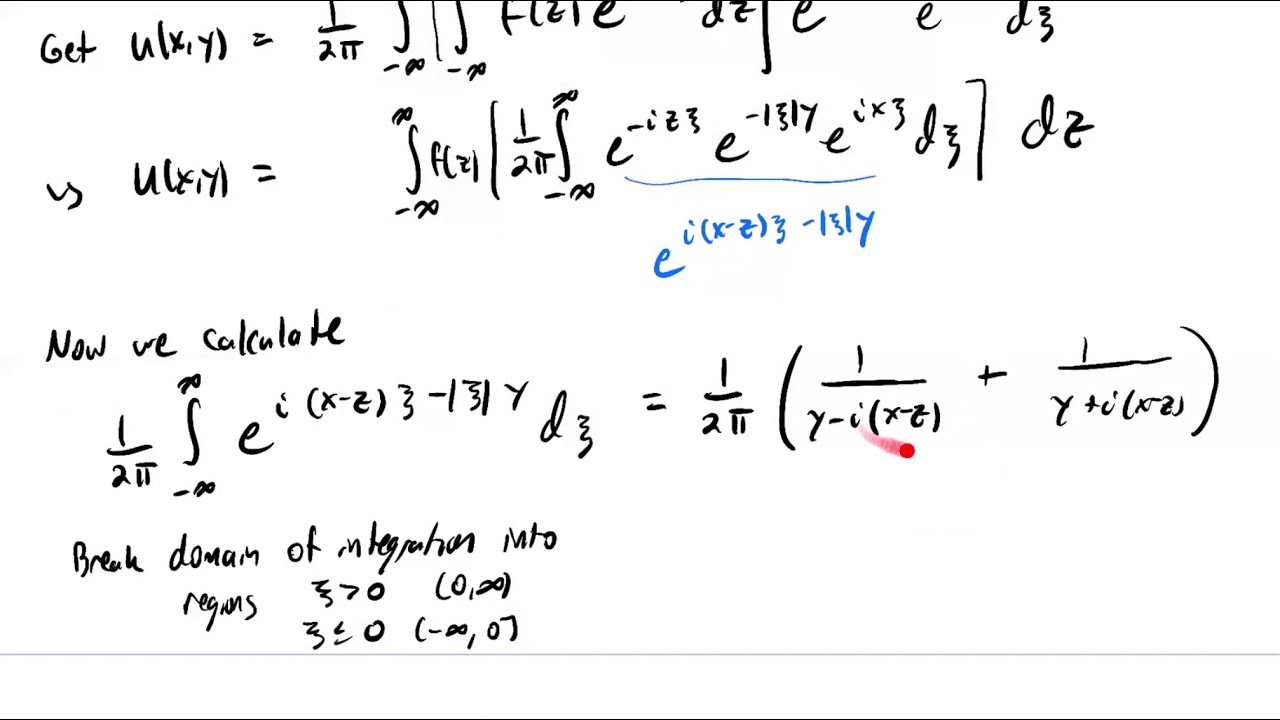 Get u(x,y) = 1/2π ∫_{-∞} [∫_{-∞} f(z) e dz] e e dξ
↳ u(x,y) = ∫_{-∞}^{∞} f(z) [1/2π ∫_{-∞}^{∞} e^{-izξ} e^{-|ξ|y} e^{ixξ} dξ] dz
e^{i(x-z)ξ - |ξ|y}
Now we calculate
1/2π ∫_{-∞}^{∞} e^{i(x-z)ξ - |ξ|y} dξ = 1/2π (1/(y-i(x-z)) + 1/(y+i(x-z)))
Break domain of integration into
regions ξ>0 (0,∞)
ξ≤0 (-∞,0]